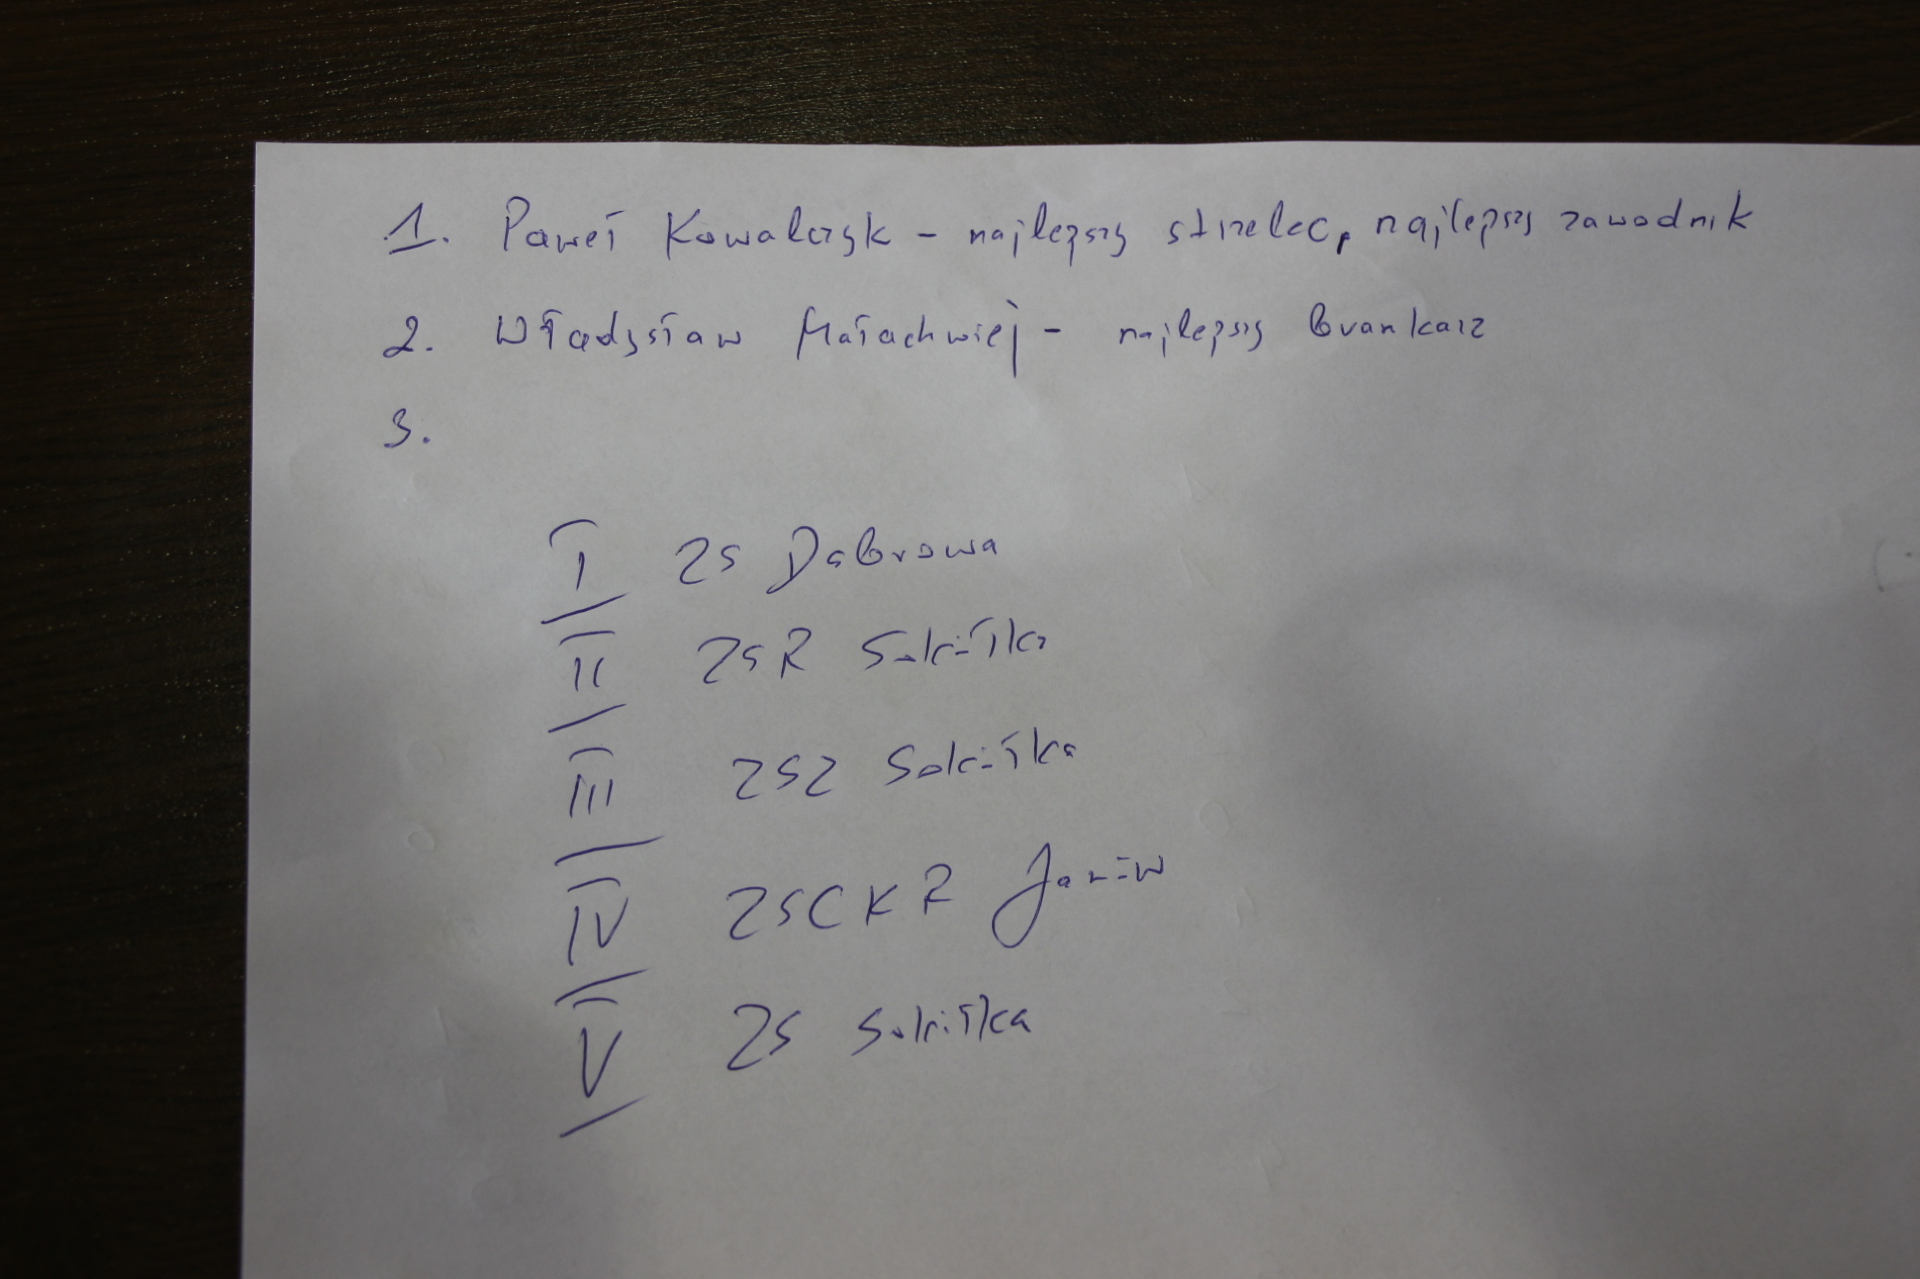 1. Paweł Kowalczyk - najlepszy strzelec, najlepszy zawodnik
2. Władysław Małachwiej - najlepszy bramkarz
3.
I ZS Dąbrowa
II ZSR Sokółka
III ZSZ Sokółka
IV ZSCKR Janów
V ZS Sokółka